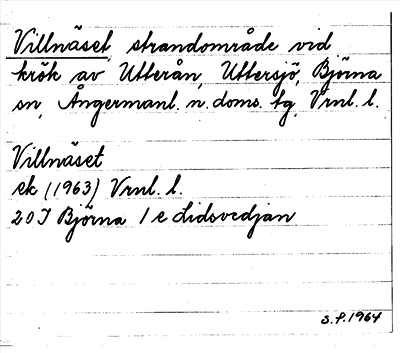 Villnäset, strandområde vid
krök av Utterån, Uttersjö, Björna
sn, Ångermanl. n. doms. tg, Vrnl. l.
Villnäset
ek (1963) Vrnl. l.
20 J Björna 1 e Lidsvedjan
S.F. 1964